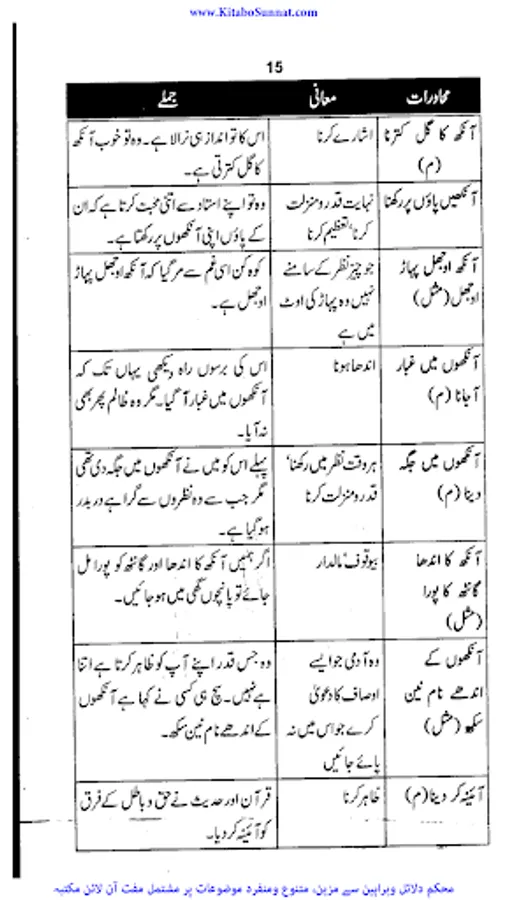 www.KitaboSunnat.com
15
محاورات معانی جملے
آنکھ کا گل کترنا اشارے کرنا اس کا تو انداز ہی نرالا ہے۔ وہ تو خوب آنکھ
(م) کا گل کترتی ہے۔
آنکھیں پاؤں پر رکھنا نہایت قدر و منزلت وہ تو اپنے استاد سے اتنی محبت کرتا ہے کہ ان
کرنا' تعظیم کرنا کے پاؤں اپنی آنکھوں پر رکھتا ہے۔
آنکھ اوجھل پہاڑ جو چیز نظر کے سامنے کوہ کن اسی غم سے مر گیا کہ آنکھ اوجھل پہاڑ
اوجھل (مثل) نہیں وہ پہاڑ کی اوٹ اوجھل ہے۔
میں ہے
آنکھوں میں غبار اندھا ہونا اس کی برسوں راہ دیکھی یہاں تک کہ
آجانا (م) آنکھوں میں غبار آ گیا۔ مگر وہ ظالم پھر بھی
نہ آیا۔
آنکھوں میں جگہ ہر وقت نظر میں رکھنا' پہلے اس کو میں نے آنکھوں میں جگہ دی تھی
دینا (م) قدر و منزلت کرنا مگر جب سے وہ نظروں سے گرا ہے در بدر
ہو گیا ہے۔
آنکھ کا اندھا بیوقوف' مالدار اگر ہمیں آنکھ کا اندھا اور گانٹھ کو پورا مل
گانٹھ کا پورا جائے تو پانچوں گھی میں ہو جائیں۔
(مثل)
آنکھوں کے وہ آدمی جو ایسے وہ جس قدر اپنے آپ کو ظاہر کرتا ہے اتنا
اندھے نام نین اوصاف کا دعویٰ ہے نہیں۔ سچ ہی کسی نے کہا ہے آنکھوں
سکھ (مثل) کرے جو اس میں نہ کے اندھے نام نین سکھ۔
پائے جائیں
آئینہ کر دینا (م) ظاہر کرنا قرآن اور حدیث نے حق و باطل کے فرق
کو آئینہ کر دیا۔
محکم دلائل وبراہین سے مزین، متنوع ومنفرد موضوعات پر مشتمل مفت آن لائن مکتبہ